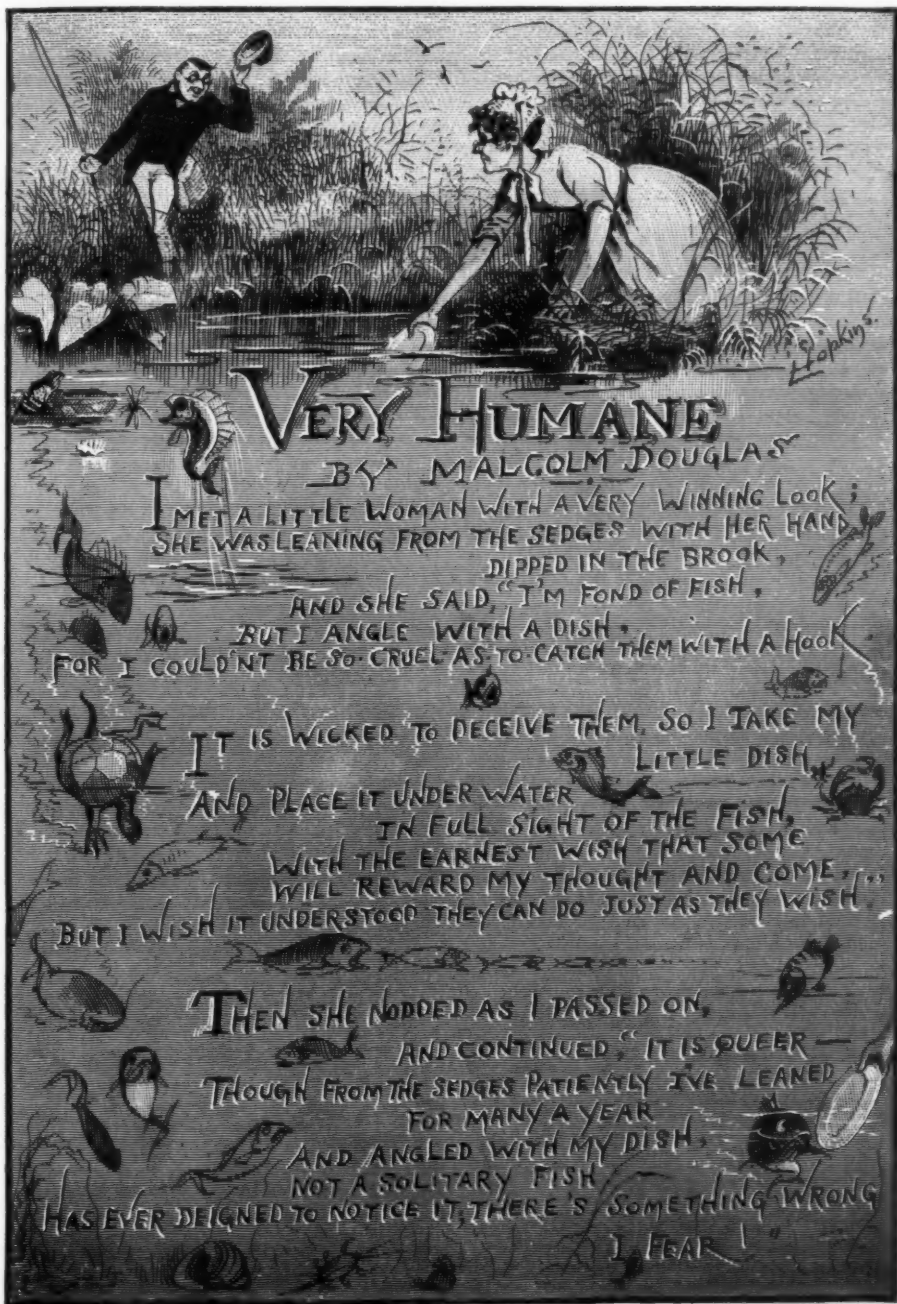 L Hopkins.
VERY HUMANE
BY MALCOLM DOUGLAS
I MET A LITTLE WOMAN WITH A VERY WINNING LOOK;
SHE WAS LEANING FROM THE SEDGES WITH HER HAND
DIPPED IN THE BROOK,
AND SHE SAID, "I'M FOND OF FISH,
BUT I ANGLE WITH A DISH,
FOR I COULD'NT BE SO CRUEL AS TO CATCH THEM WITH A HOOK.
IT IS WICKED TO DECEIVE THEM, SO I TAKE MY
LITTLE DISH,
AND PLACE IT UNDER WATER
IN FULL SIGHT OF THE FISH,
WITH THE EARNEST WISH THAT SOME
WILL REWARD MY THOUGHT AND COME,
BUT I WISH IT UNDERSTOOD THEY CAN DO JUST AS THEY WISH."
THEN SHE NODDED AS I PASSED ON,
AND CONTINUED, "IT IS QUEER —
THOUGH FROM THE SEDGES PATIENTLY I'VE LEANED
FOR MANY A YEAR
AND ANGLED WITH MY DISH,
NOT A SOLITARY FISH
HAS EVER DEIGNED TO NOTICE IT, THERE'S SOMETHING WRONG
I FEAR!"